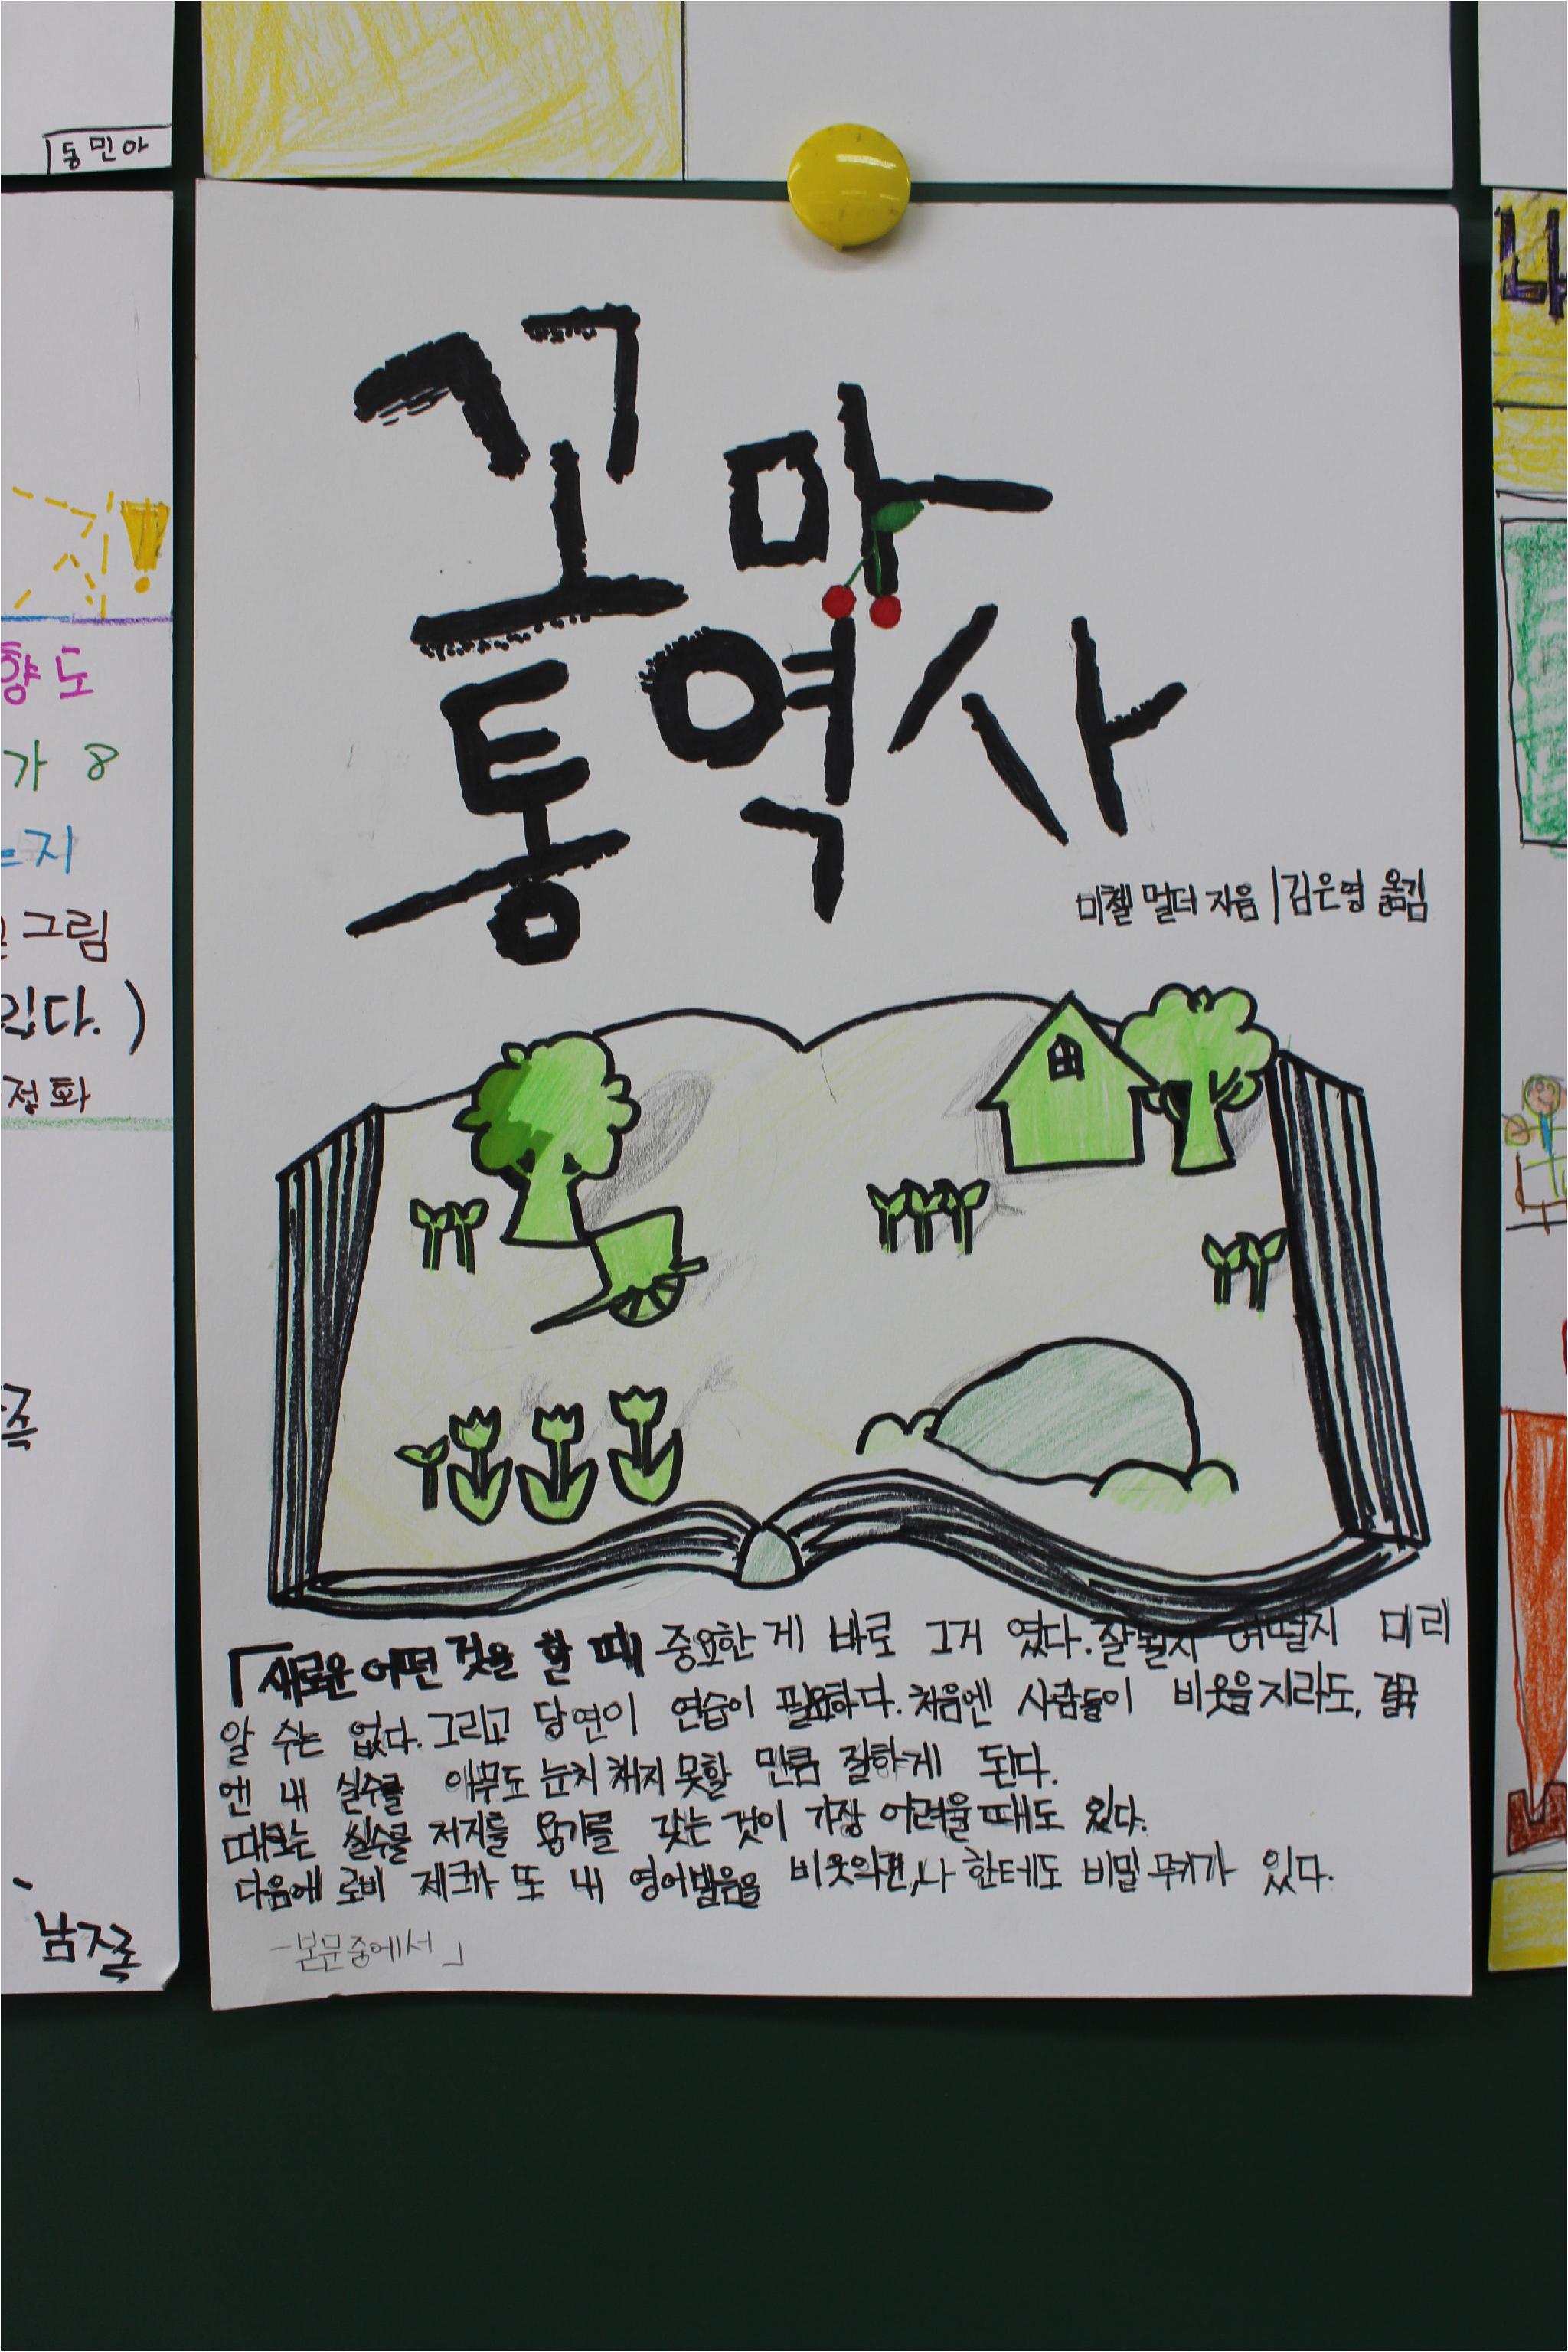 동민아
꼬마
통역사
미첼 멀더 지음 | 김은영 옮김
「새로운 어떤 것을 할 때 중요한 게 바로 그거 였다. 잘될지 어떨지 미리
알 수는 없다. 그리고 당연이 연습이 필요하다. 처음엔 사람들이 비웃을지라도, 결국
엔 내 실수를 아무도 눈치 채지 못할 만큼 잘하게 된다.
때로는 실수를 저지를 용기를 갖는 것이 가장 어려울 때도 있다.
다음에 로비 제크가 또 내 영어발음을 비웃으면, 나 한테도 비밀 무기가 있다.
-본문중에서」
향도
가 8
지
그림
있다.)
정화
족
남족
나